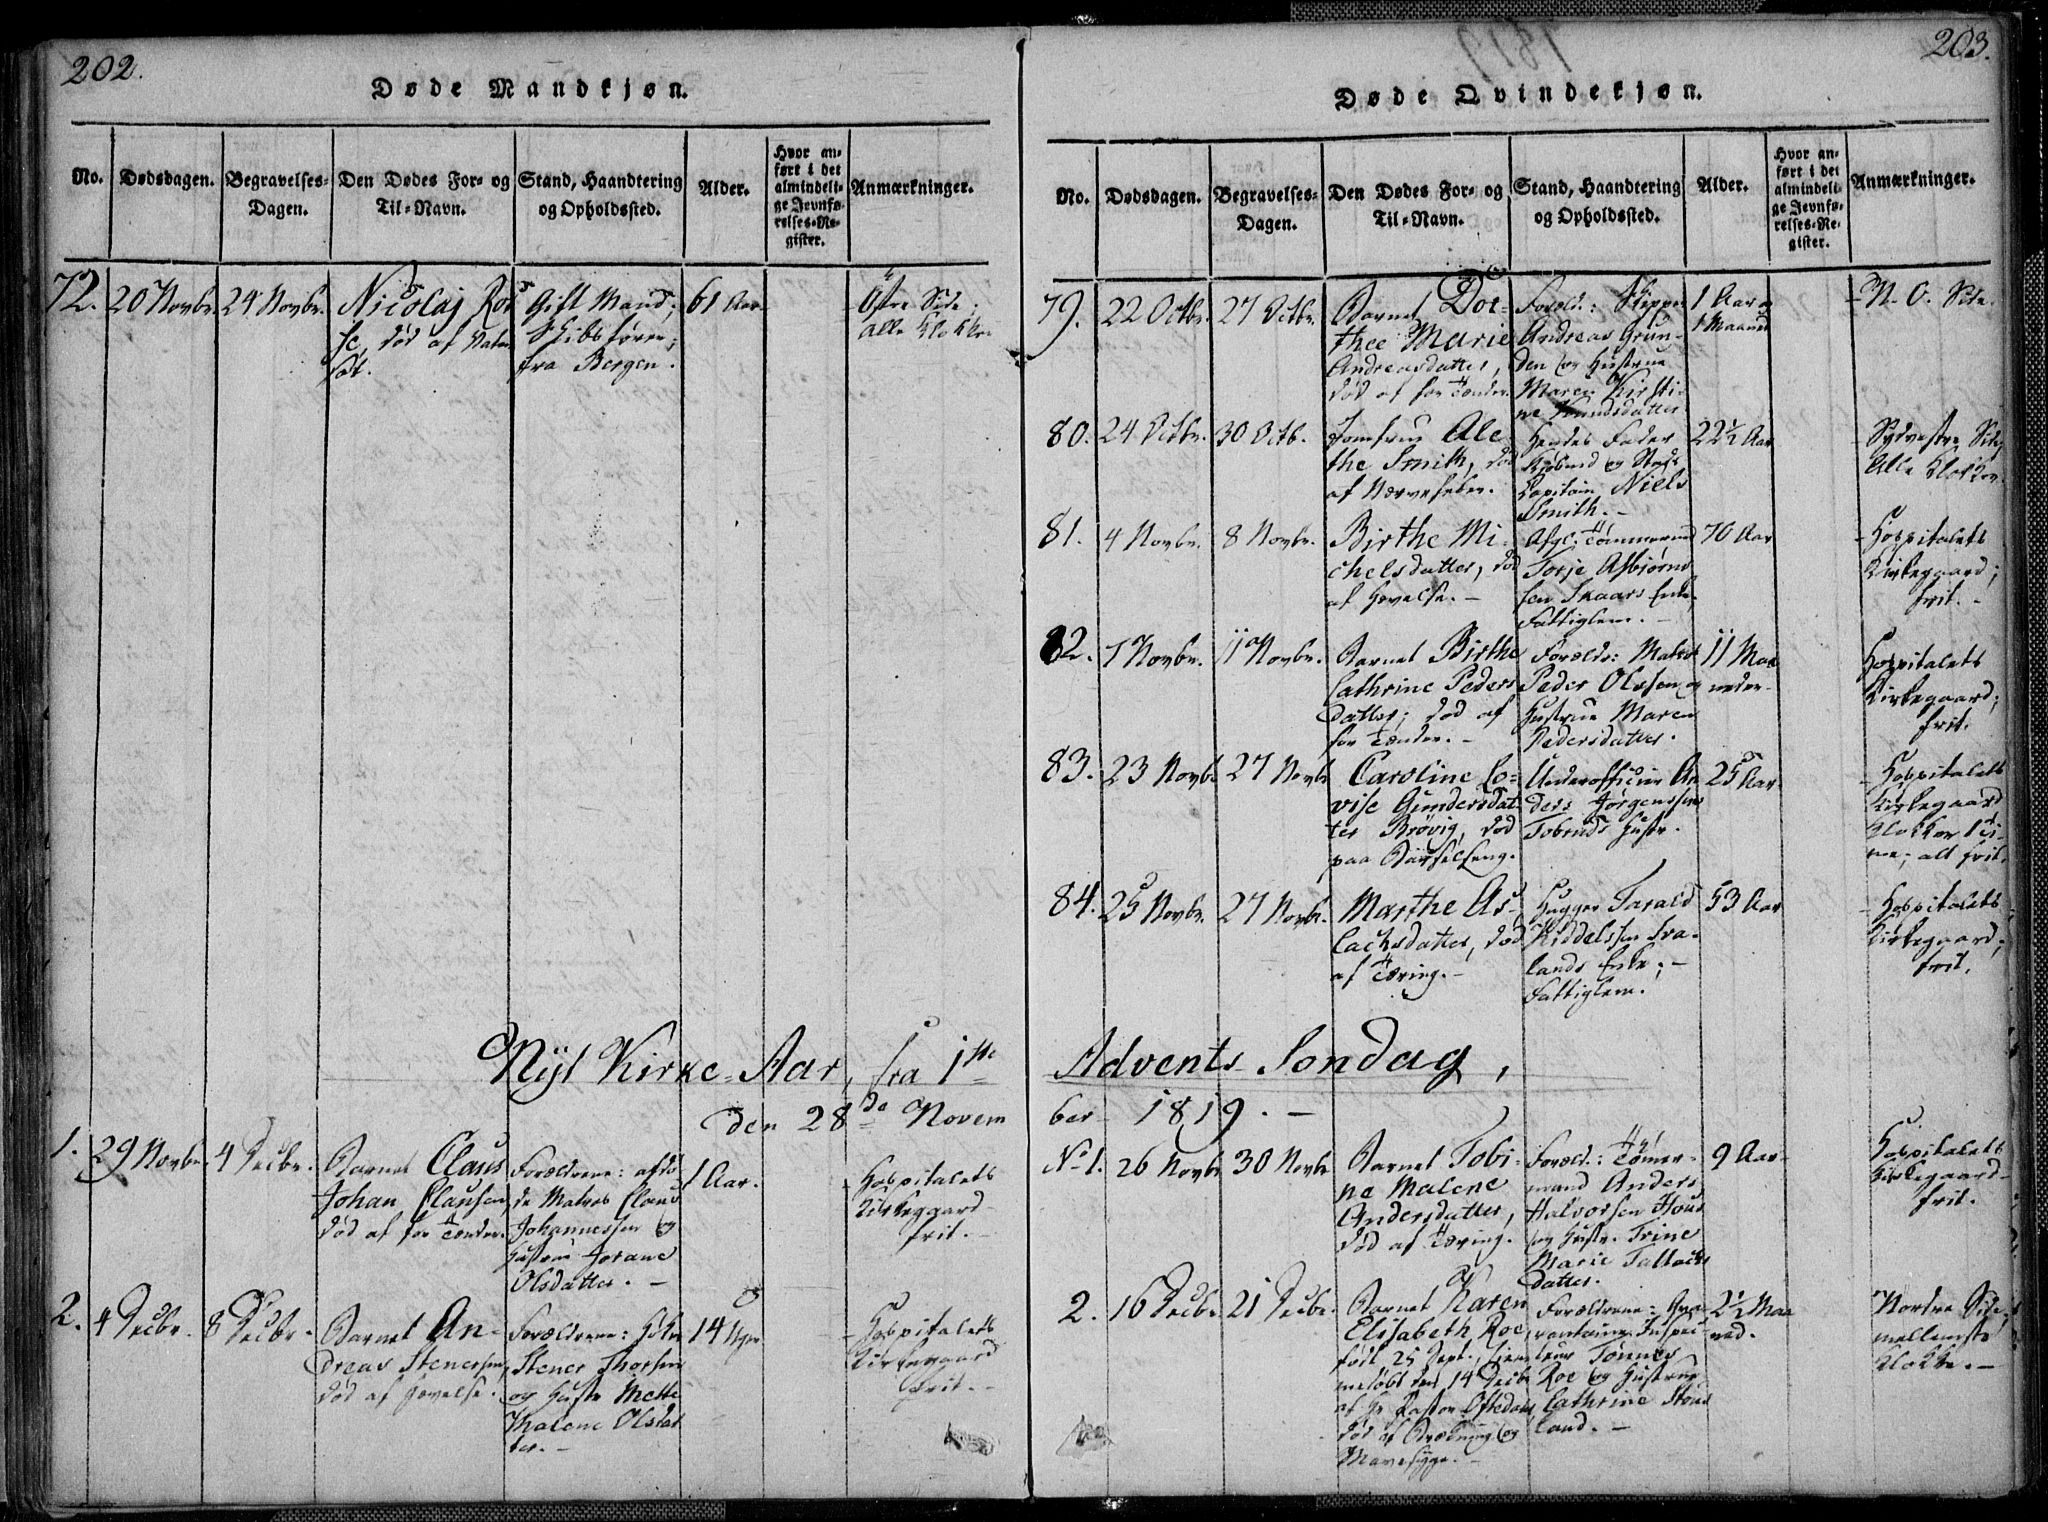 202.
Døde Mandkjøn.
No.
Dødsdagen.
Begravelses-
Dagen.
Den Dødes For- og
Til-Navn.
Stand, Haandtering
og Opholdssted.
Alder.
Hvor an-
ført i det
almindeli-
ge Jevnfø-
relses-Re-
gister.
Anmærkninger.
72.
20 Novbr.
24 Novbr.
Nicolaj Ros
se, død af
Gift Mand;
Skibsfører,
fra Bergen.
61 Aar
Østre Side;
alle Klokker
Nyt Kirke-Aar, fra 1ste
den 28de Novem
1.
29 Novbr.
4 Decbr.
Barnet Claus
Johan Clausen,
død af for Tænder.
Forældrene: afdø
de Matros Claus
Johannessen og
Hustrue Jorane
Olsdatter. –
1 Aar.
Hospitalets
Kirkegaard
frit. –
2.
4 Decbr.
8 Decbr.
Barnet An-
dreas Stenersen,
død af Hævelse.
Forældrene:
Stener Thorsen
og Hustr. Mette
Malene Olsdat
ter. –
14 Uger
Hospitalets
Kirkegaard
frit. –
203.
1819
Døde Qvindekjøn.
No.
Dødsdagen.
Begravelses-
Dagen.
Den Dødes For- og
Til-Navn.
Stand, Haandtering
og Opholdssted.
Alder.
Hvor an-
ført i det
almindeli-
ge Jevnfø-
relses-Re-
gister.
Anmærkninger.
79.
22 Octbr.
27 Octbr.
Barnet Dor-
thee Marie
Andreasdatter,
død af for Tænder
Foræld.: Skipper
Andreas Grun-
den og Hustrue
Maren Kirsti-
ne
1 Aar og
1 Maaned
– N. O. Side.
80.
24 Octbr.
30 Octb.
Jomfrue Ale
the Smith, død
af Nervefeber.
Hendes Fader
Kjøbmd og Stads
Capitain Niels
Smith. –
22½ Aar
– Sydvestre Side,
Alle Klokker.
81.
4 Novbr.
8 Novbr.
Birthe Mi-
chelsdatter, død
af Hævelse. –
Afgl. Tømmermd
Torje Asbiørns
sen Skaars Enke,
Fattiglem. –
70 Aar
– Hospitalets
Kirkegaard;
frit. –
82.
7 Novbr.
11 Novbr.
Barnet Birthe
Cathrine Peders
datter; død af
for Tænder. –
Forældr: Matros
Peder Olsson og
Hustrue Maren
Pedersdatter.
11 Maa
neder.
Hospitalets
Kirkegaard;
frit.
83.
23 Novbr
27 Novbr
Caroline Lo-
vise Gundersdat
ter Brøvig, død
paa Barselseng.
Underofficier An
ders Jørgenssens
Tobruds Hustr.
25 Aar.
– Hospitalets
Kirkegaard
Klokker 1 Ti-
me; alt frit.
84.
25 Novbr.
27 Novbr.
Marthe As-
lacksdatter, død
af Tæring. –
Hugger Tarald
Kiddelssen Fra-
lands Enke; –
Fattiglem.
53 Aar
– Hospitalets
Kirkegaard;
frit.
Advents Søndag,
ber 1819. –
No 1.
26 Novbr
30 Novbr
Barnet Tobi-
ne Malene
Andersdatter,
død af Tæring.
Foræld.: Tømer-
mand Anders
Halvorsen
og Hustr. Trine
Marie Tallacks
datter.
9 Aar
Hospitalets
Kirkegaard
frit.
2.
16 Decbr.
21 Decbr.
Barnet Karen
Elisabeth Roe,
født 25 Sept., hjem
medøbt den 14 Decbr
af Hr Pastor Oftedahl,
død af Brækning og
Mavesyge. –
Forældrene: Qva
rantaine-Inspec-
teur Tønnes
Roe og Hustrue
Cathrine
land. –
2½ Maa
ned.
Nordre Side,
mellemste
Klokke. –